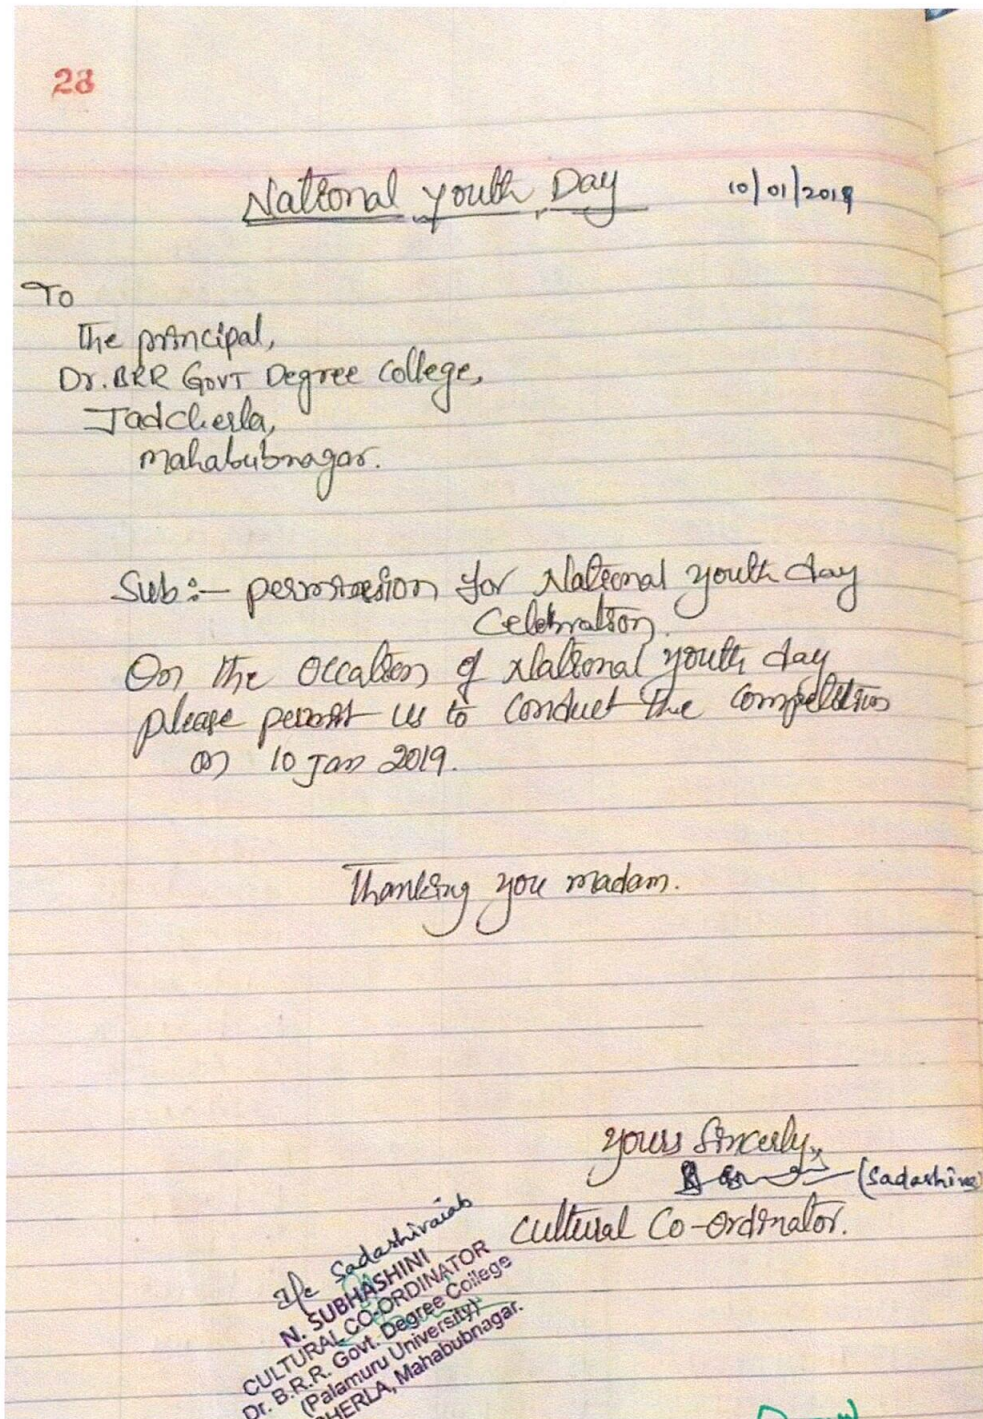 28
National youth Day 10/01/2019
To
The principal,
Dr. BRR GOVT Degree college,
Jadcherla,
mahabubnagar.
Sub:- permission for National youth day
Celebration.
On the occation of National youth day
please permit us to conduct the competition
on 10 Jan 2019.
Thanking you madam.
yours Sincerly,
(Sadashiva
Cultural Co-ordinator.
I/c Sadashivaiah
N. SUBHASHINI
CULTURAL CO-ORDINATOR
Dr. B.R.R. Govt. Degree College
(Palamuru University)
CHERLA, Mahabubnagar.